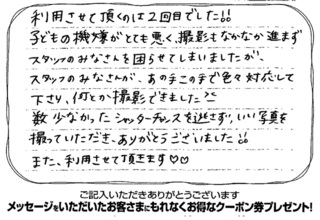 利用させて頂くのは2回目でした!!
子どもの機嫌がとても悪く、撮影もなかなか進まず
スタッフのみなさんを困らせてしまいましたが、
スタッフのみなさんが、あの手この手で色々対応して
下さり、何とか撮影できました^^
数少なかったシャッターチャンスを逃さず、いい写真を
撮っていただき、ありがとうございました!!
また、利用させて頂きます♡♡
ご記入いただきありがとうございます
メッセージをいただいたお客さまにもれなくお得なクーポン券プレゼント!